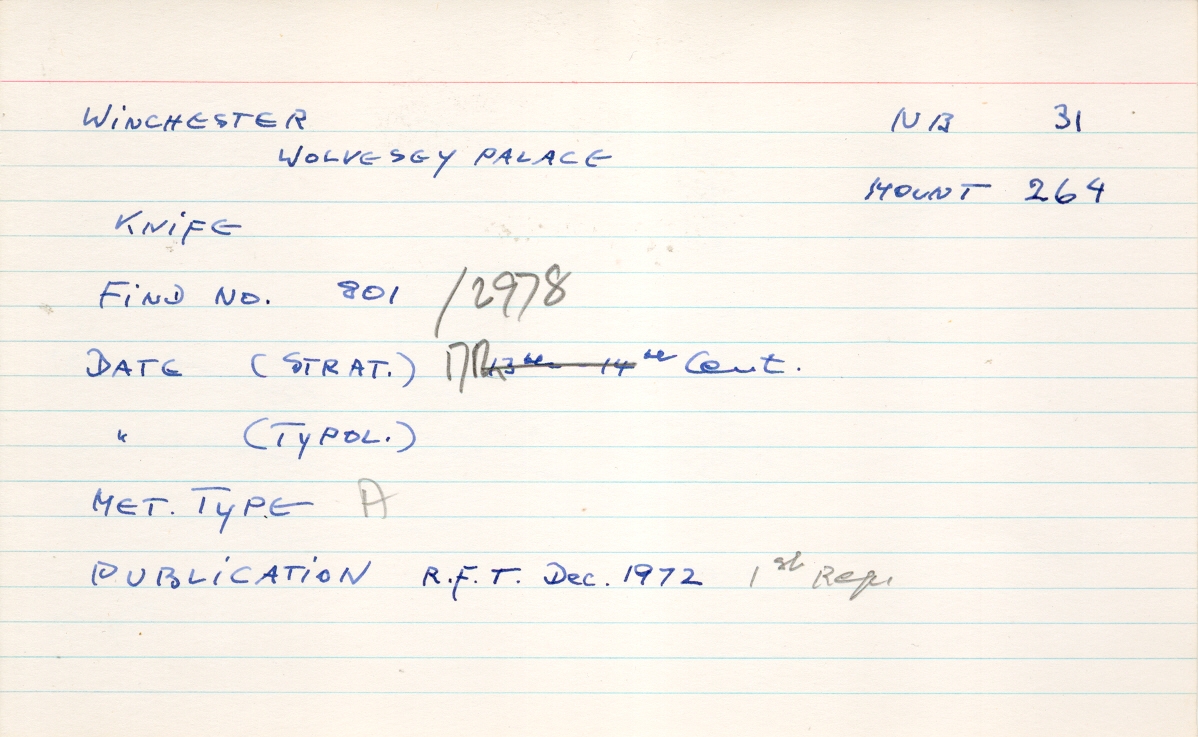 WINCHESTER NB 31
WOLVESEY PALACE
MOUNT 264
KNIFE
FIND NO. 801 /2978
DATE (STRAT.) 13th 14th Cent.
" (TYPOL.)
MET. TYPE A
PUBLICATION R.F.T. Dec. 1972 1st Rep.